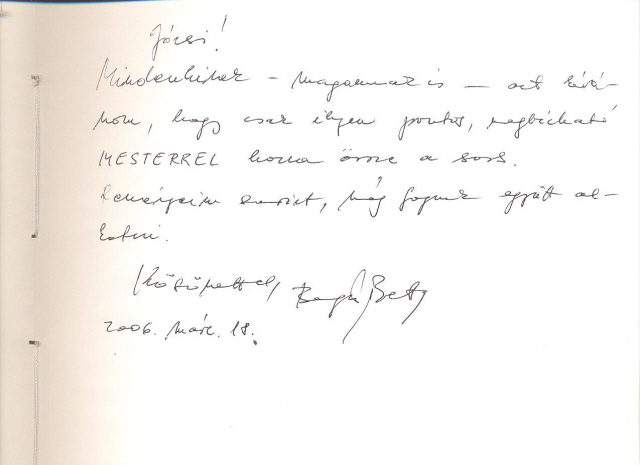 Józsi!
Mindenkinek – magamnak is – azt kívá-
nom, hogy csak ilyen pontos, megbízható
MESTERREL hozza össze a sors.
Reményeim szerint, még fogunk együtt al-
kotni.
Köszönettel,
2006. márc. 18.